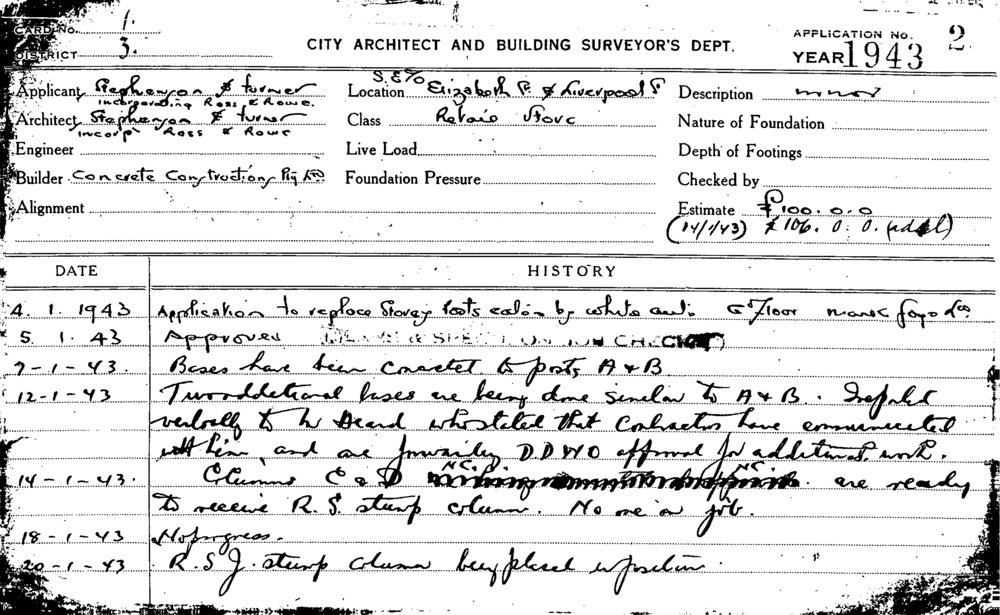 CARD No. 1.
DISTRICT 3.
CITY ARCHITECT AND BUILDING SURVEYOR'S DEPT.
APPLICATION No. 2
YEAR 1943
Applicant Stephenson & Turner
incorporating Ross & Rowe.
Architect Stephenson & Turner
incorp Ross & Rowe
Engineer
Builder Concrete Constructions Pty Ltd
Alignment
Location Elizabeth St & Liverpool St
Class Retail Store
Live Load
Foundation Pressure
Description minor
Nature of Foundation
Depth of Footings
Checked by
Estimate £100.0.0
(14/1/43) £106. 0. 0. (addl)
DATE HISTORY
4. 1. 1943 Application to replace Storey posts eaten by white ants. Mark Foys Ltd
5. 1. 43 Approved
7-1-43. Bases have been concreted to posts A & B
12-1-43 Two additional bases are being done similar to A & B. Reported
verbally to Mr Heard who stated that Contractors have communicated
with him, and are forwarding D.D.W.O approval for additional work.
14-1-43. Columns C & D are ready
to receive R.S. stump column. No one on job.
18-1-43 No progress.
20-1-43 R.S.J. stump column being placed in position.